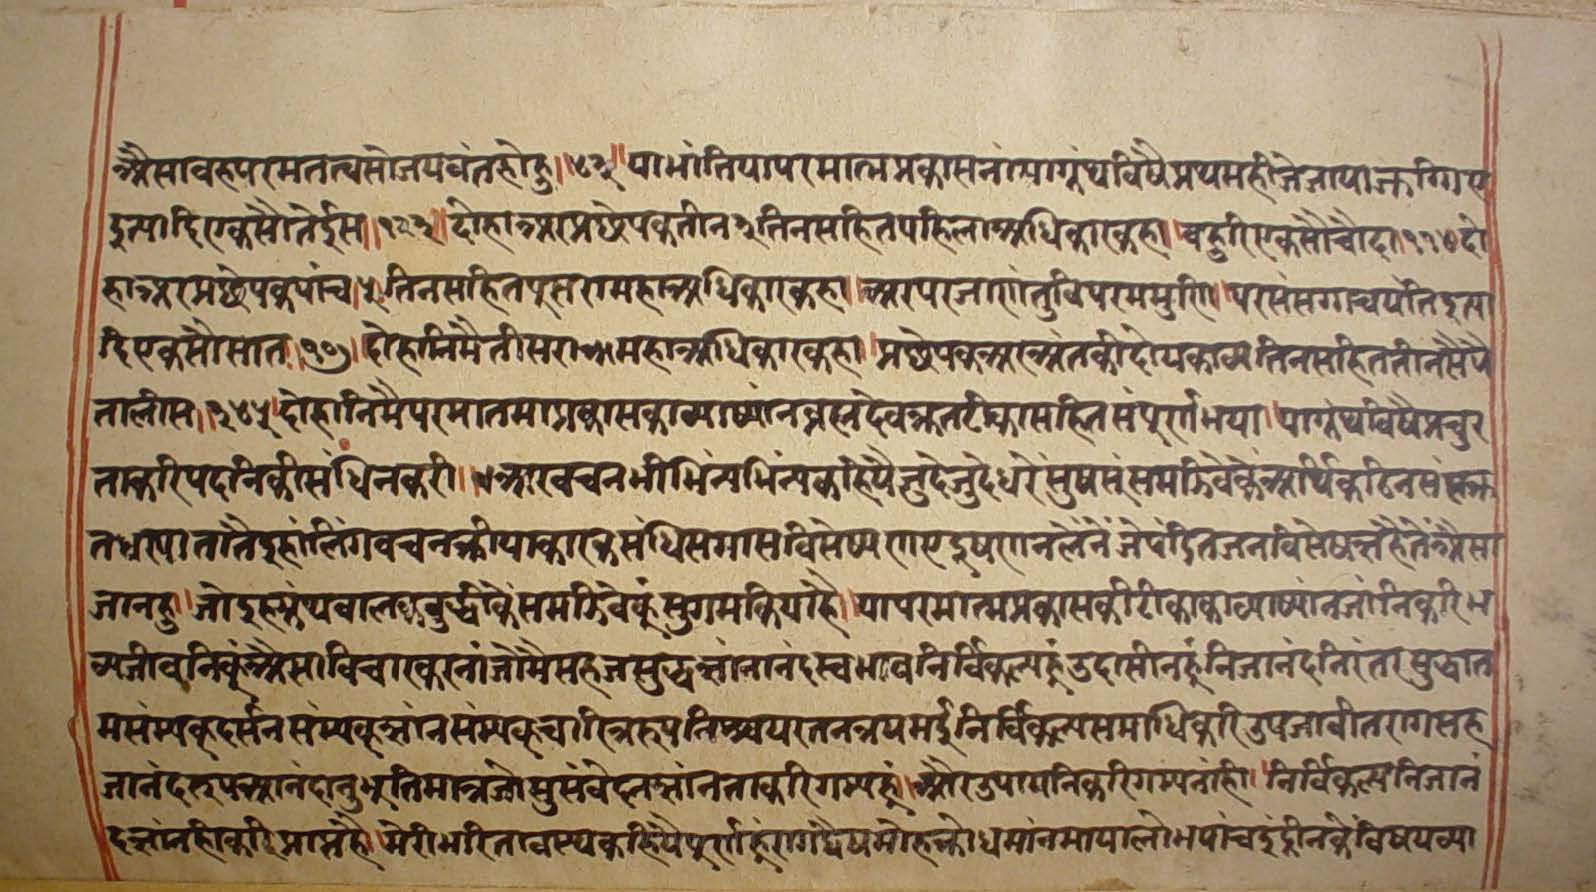 अैसा वह परमतत्व सो जयवंत होहु॥ या भांति या परमात्मप्रकासनांमा ग्रंथ विषै प्रथमही जे जाया झाणग्गिए
इत्यादि एकसौ तेईस॥१२३॥ दोहा अर प्रछेपक तीन ३ तिन सहित पहिला अधिकार कह्या॥ बहुरि एकसौ चौदा ११४ दो
हा अर प्रछेपक पांच ५ तिन सहित दूसरा महा अधिकार कह्या॥ अर पर जाणंतु वि परममुणि॥ परसंसग्ग चयंति इत्या
दि एकसौ सात॥१०७॥ दोहानिमै तीसरा महा अधिकार कह्या॥ प्रछेपक अर अंतकी दोय काव्य तिन सहित तीनसै पै
तालीस॥३४५॥ दोहानिमै परमातमाप्रकासका व्याष्यांन ब्रह्मदेवकृत टीका सहित संपूर्ण भया॥ या ग्रंथ विषै प्रचुर
ताकरि पदनिकी संधि न करी॥ अर वचन भी भिंन्य भिंन्य कहियै जुदे जुदे धरे सुषसूं समझिवेकैं अर्थि कठिन संस्कृ
त न धर्या तातै इहां लिंग वचन क्रीया कारक संधि समास विसेष्य विसेषण दूषण न लेनें जे पंडित जन विसेषज्ञ है ते अैसा
जानहु॥ जो इह ग्रंथ बालबुद्धीकै समझिवेकूं सुगम किया है॥ या परमात्मप्रकासकी टीका का व्याष्यांन जांनिकरि भ
व्यजीवनिकूं अैसा विचार करनां जो मै सहज सुद्ध ज्ञांनानंद स्वभाव निर्विकल्प हूं उदासीन हूं निजानंद निरंतर सुद्धात
म संम्यक्दर्सन संम्यक्ज्ञांन संम्यक्चारित्ररूप निश्चय रतनत्रयमई निर्विकल्प समाधिकरि उपजा वीतराग सह
जानंदरूप आनंदानुभूतिमात्र जो सुसंवेदनज्ञांन ताकरि गम्य हूं॥ और उपायनिकरि गम्य नांही॥ निर्विकल्प निजानं
द ज्ञांनहीकरि प्राप्त है॥ मेरी भरितावस्थ कहियै पूर्ण हूं राग द्वेष मोह क्रोध मांन माया लोभ पांच इंद्रीनके विषय व्या